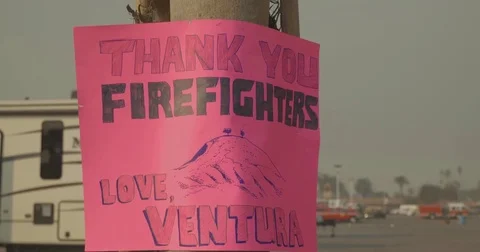 THANK YOU
FIREFIGHTERS
LOVE,
VENTURA